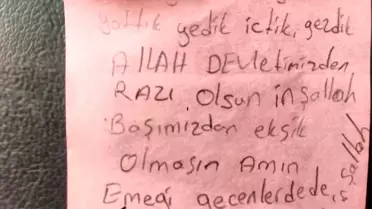 yattık yedik içtik, gezdik
AllAH DEVletimizden
RAZI Olsun inşallah
Başımızdan eksik
Olmasın Amın
Emeği geçenlerdede, inşallah